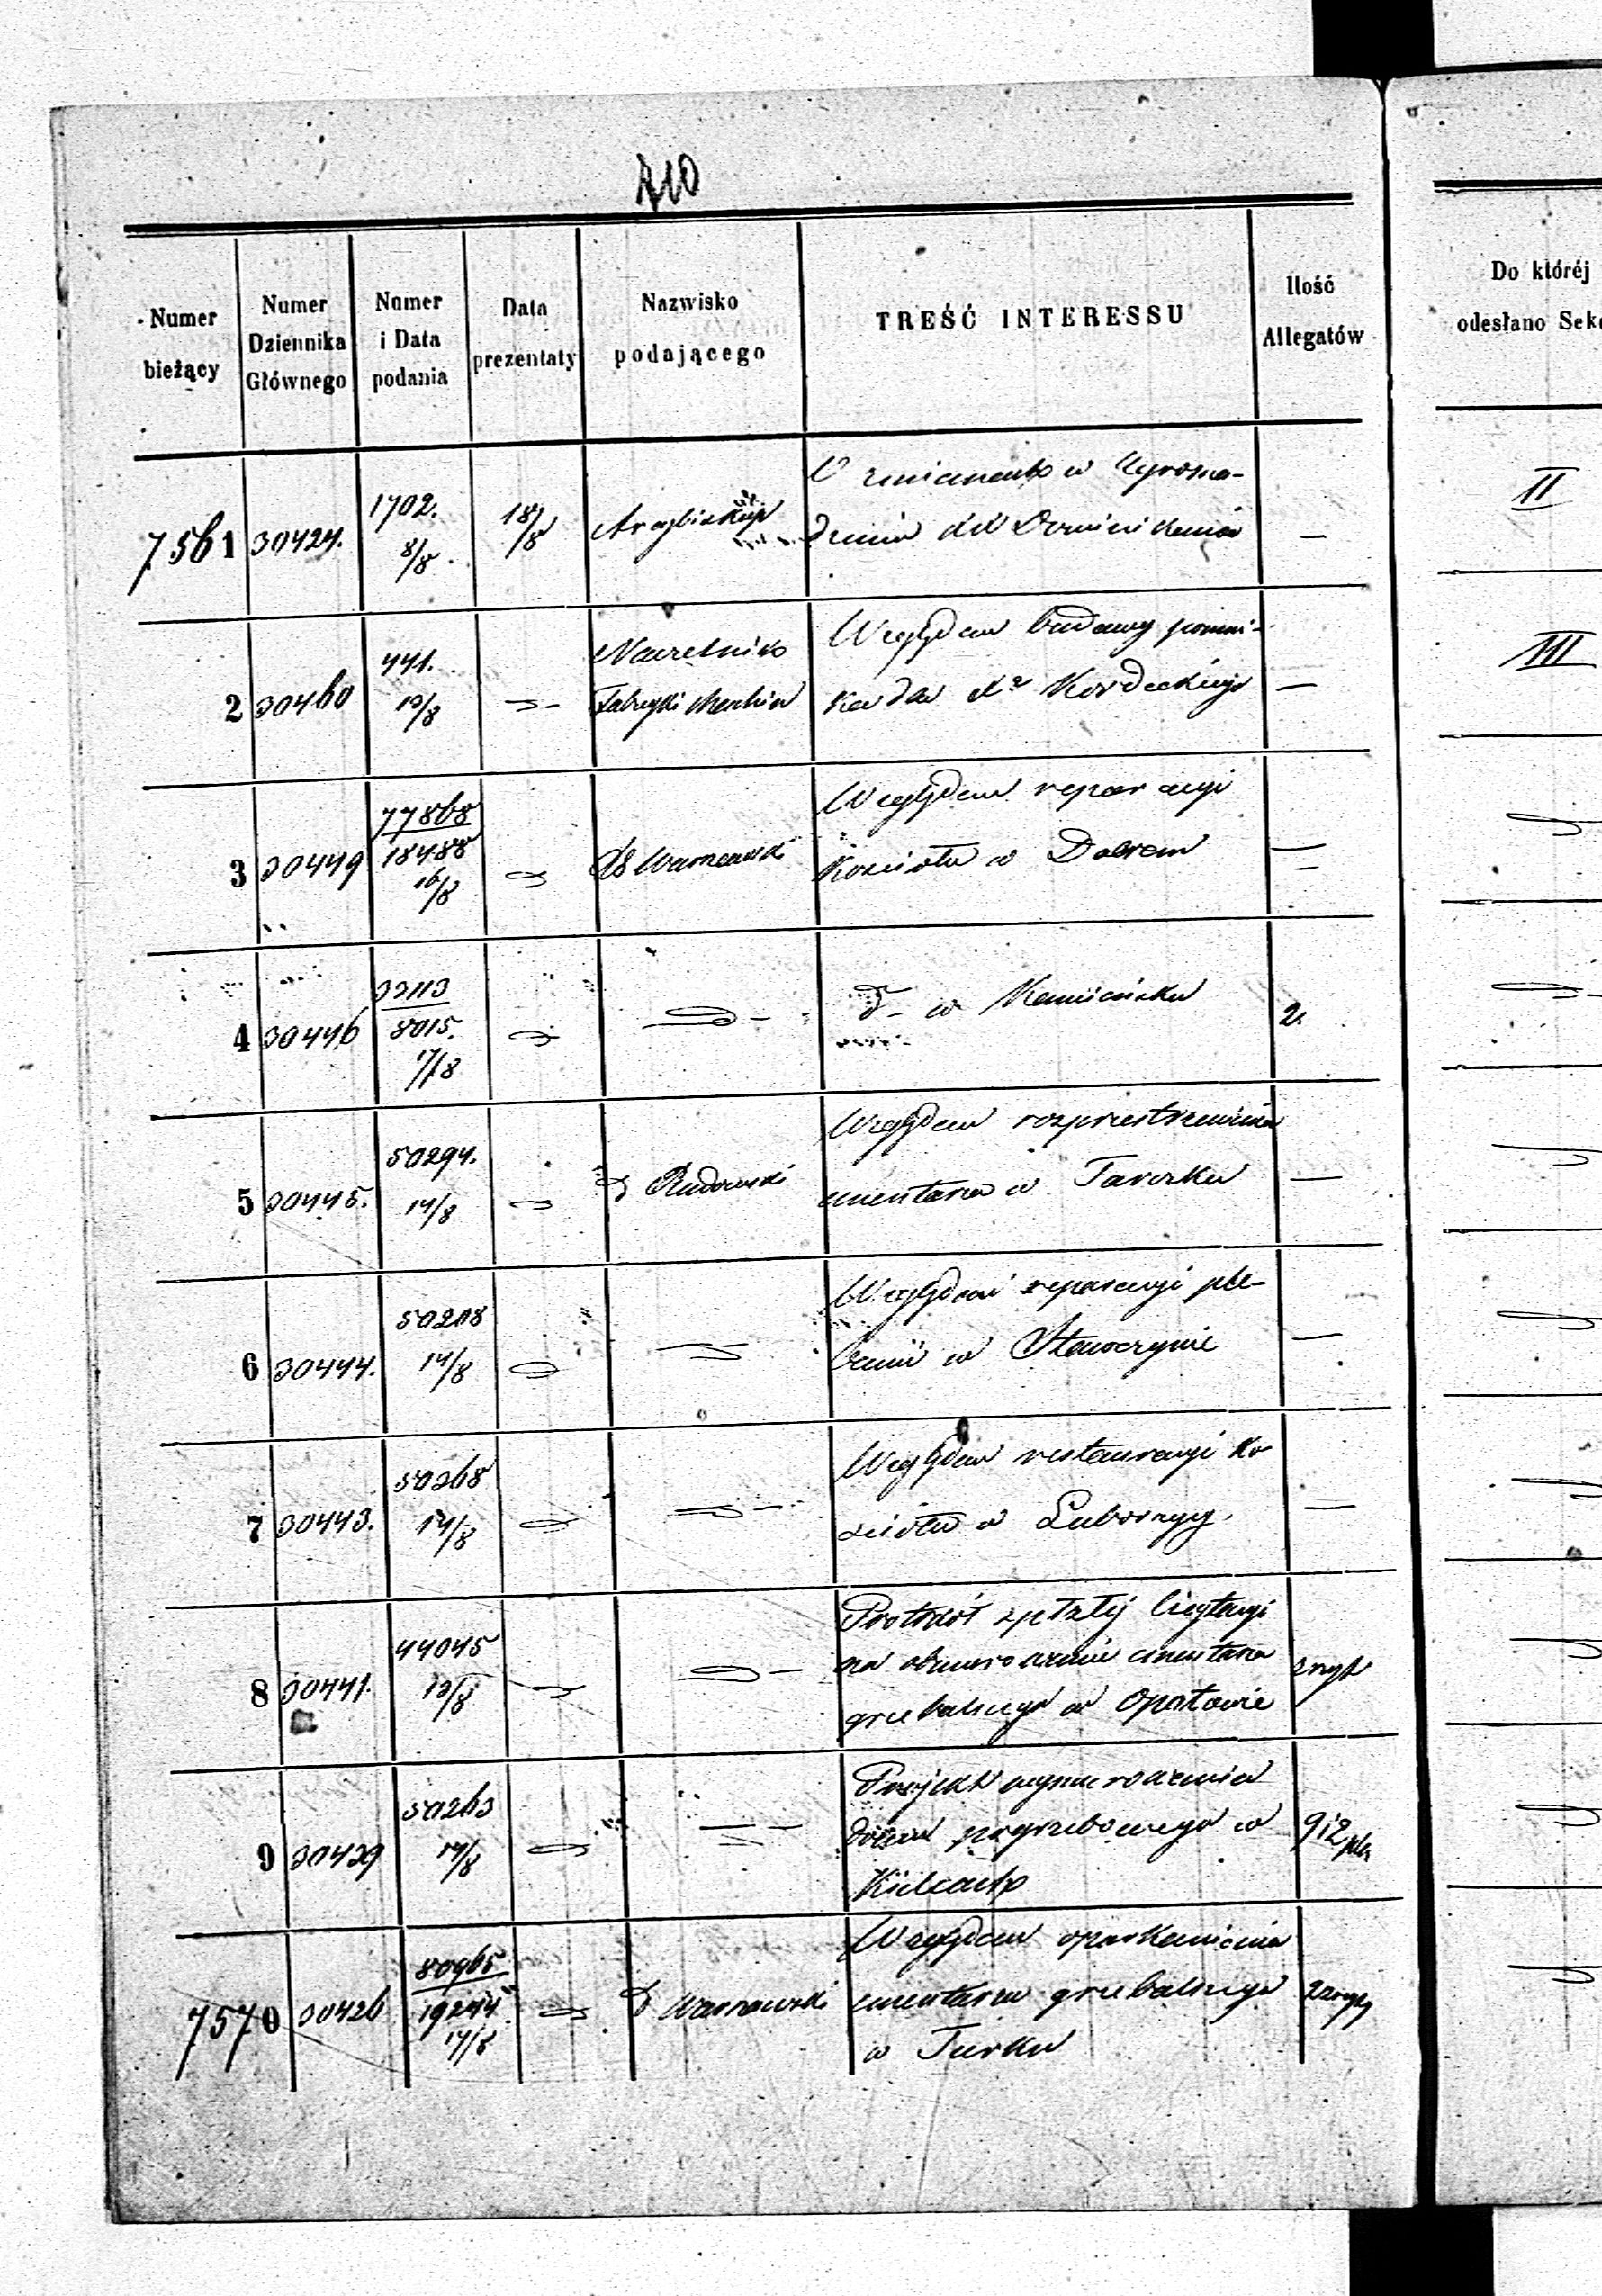 210
Numer bieżący
Numer Dziennika Głównego
Numer i Data podania
Data prezentaty
Nazwisko podającego
TREŚĆ INTERESSU
Ilość Allegatów
Do któréj
odesłano Sek
7561 30424. 1702. 8/8 18/8 Arcybiskup
O zmianach w Zgroma-
dzeniu XX Dominikanów —
II
2 30460 441. 13/8 Naczelnik
Fabryki Machin
Względem budowy pomni-
ka dla Xa Kordeckiego —
III
3 30449 77868
18488
16/8
RG Warszawski
Względem reparacyi
Kościoła w Dobrem —
4 30446 33113
8015.
17/8
d- w Kamieńsku 2.
5 30445. 50294.
14/8
d Radomski
Względem rozprzestrzenienia
cmentarza w Tarczku —
6 30444. 50208
14/8
Względem reparacyi ple-
banii w Sławoszynie —
7 30443. 50268
14/8
Względem restauracyi Ko-
ścioła w Luborzycy. —
8 30441. 44045
13/8
Protokół spełzłej licytacyi
na obmurowanie cmentarza
grzebalnego w Opatowie
9 30429 50263
14/8
Projekt wymurowania
domu pogrzebowego w
Kielcach
9 i 2 pla
7570 30426 80965
19244
14/8
d Warszawski
Względem oparkanienia
cmentarza grzebalnego
w Turku